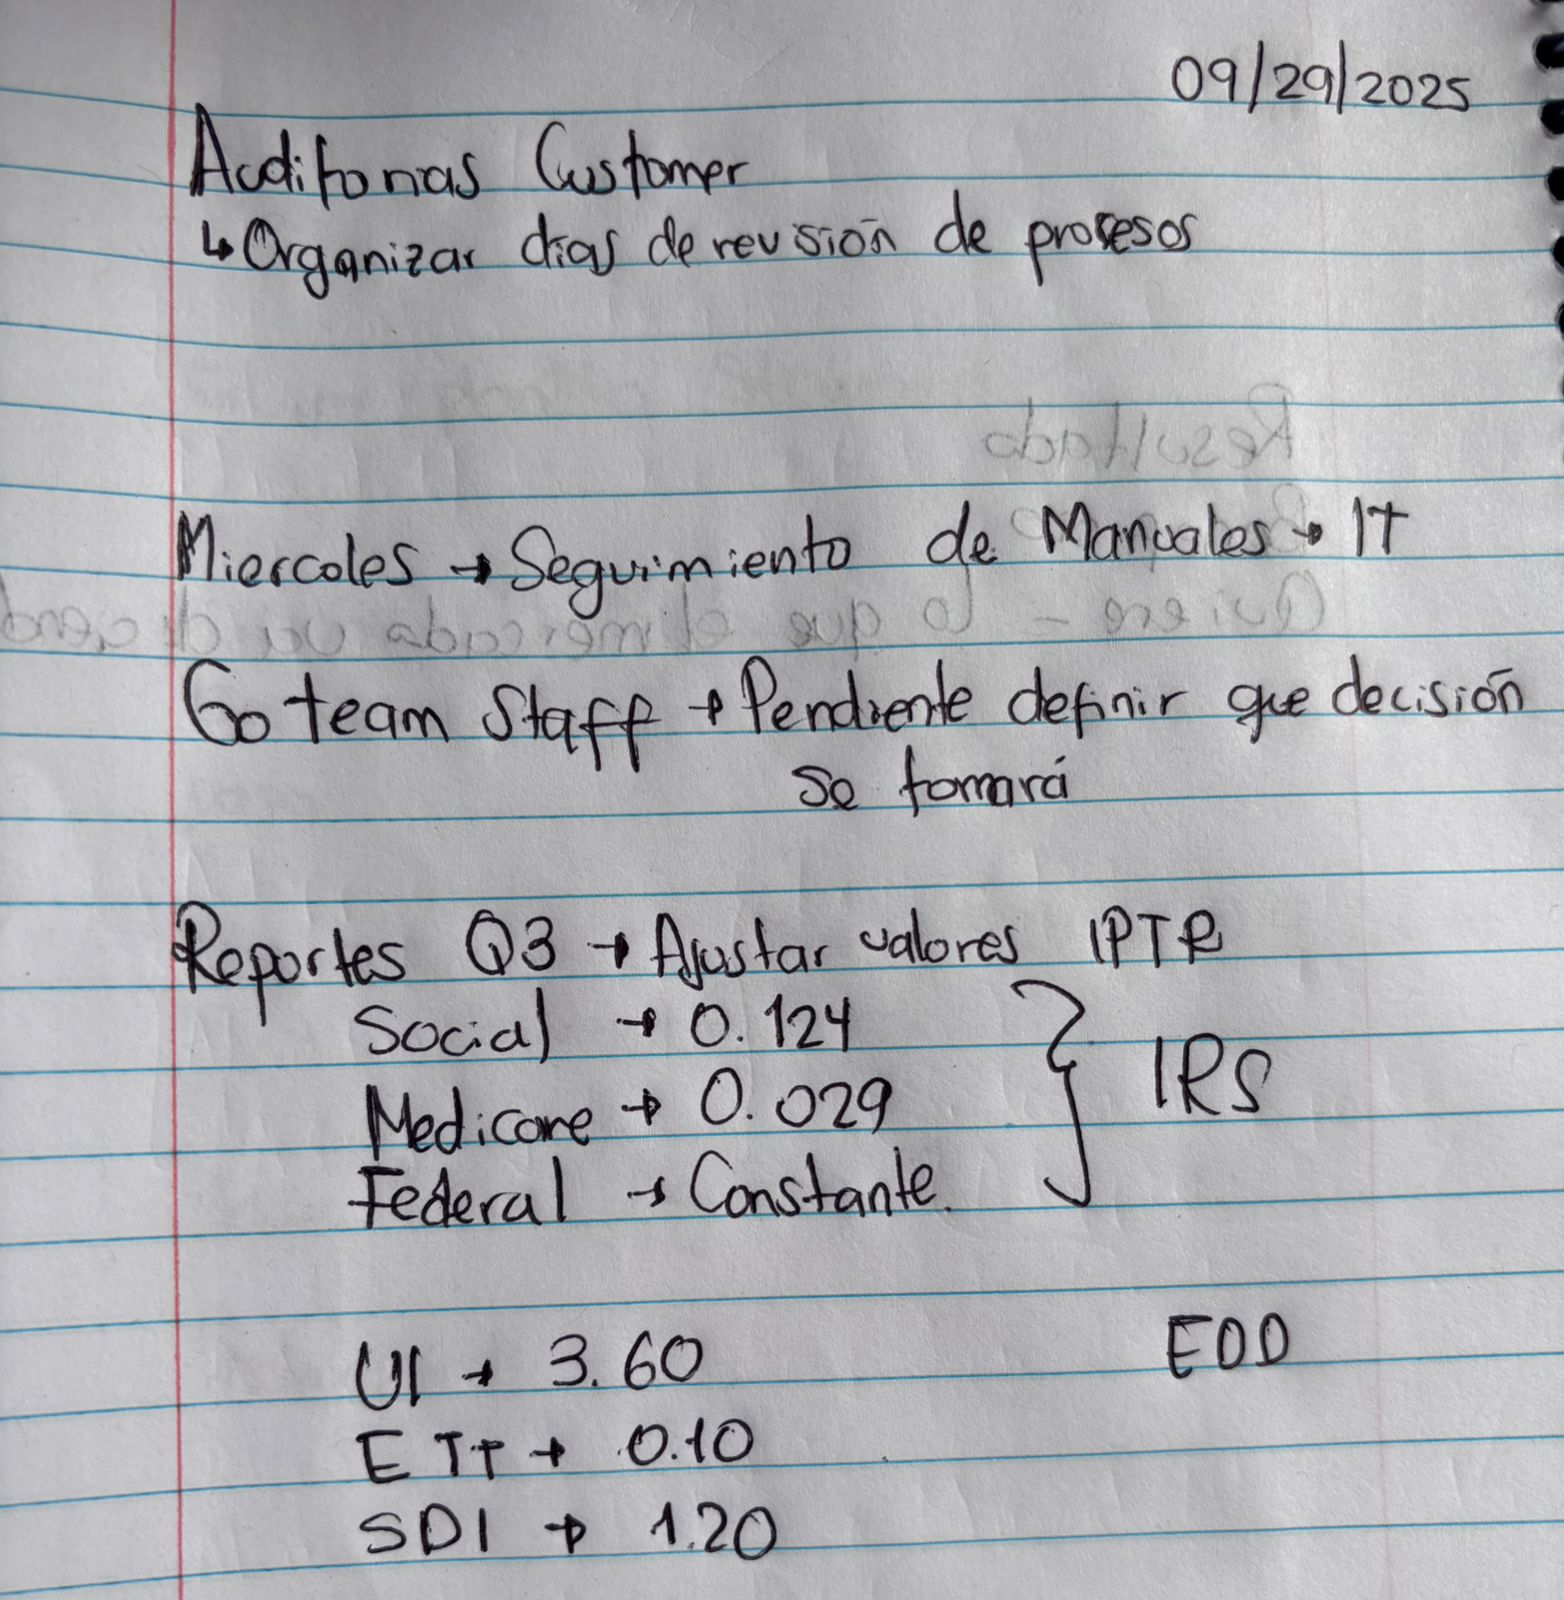 09/29/2025
Auditorias Customer
↳ Organizar dias de revisión de procesos
Resultado
Miercoles → Seguimiento de Manuales → IT
Quiero - lo que el mercado
Go team Staff → Pendiente definir que decisión
se tomará
Reportes Q3 → Ajustar valores IPTR
Social → 0.124
Medicare → 0.029
Federal → Constante.
} IRS
UI → 3.60 EDD
ETT → 0.10
SDI → 1.20